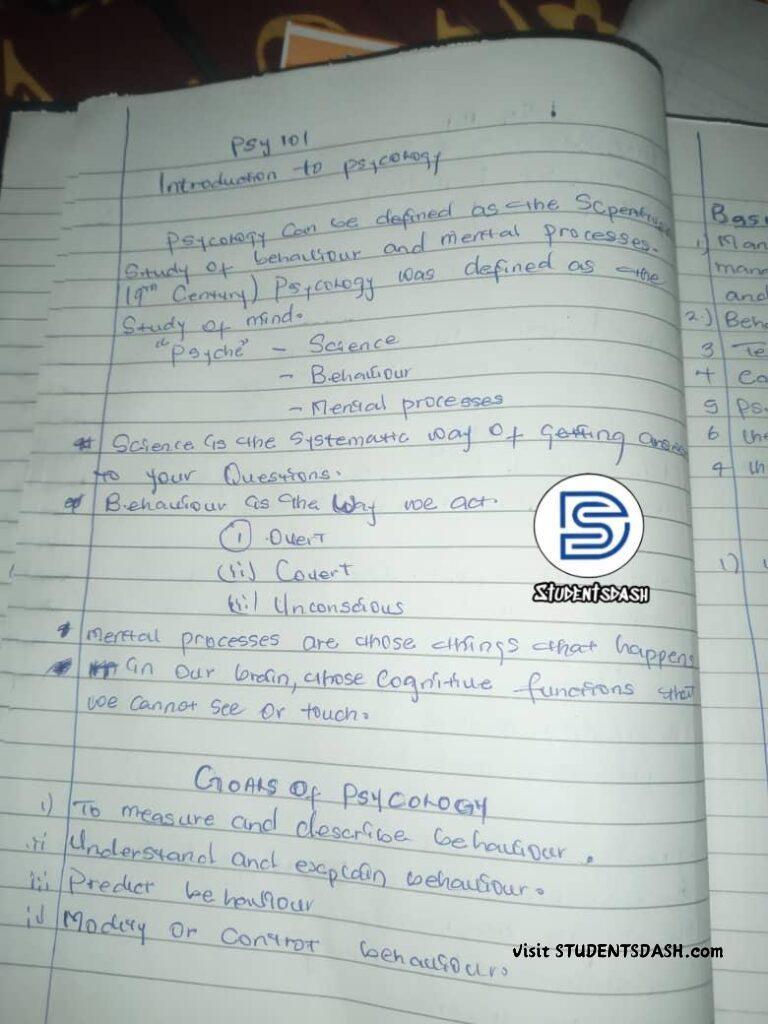 PSY 101
Introduction to psycology
Psycology can be defined as the
Study of behaviour and mental processes.
19th Century) Psycology was defined as the
Study of mind.
"Psyche" - Science
- Behaviour
- Mental processes
* Science is the systematic way of getting
to your Questions.
* Behaviour is the way we act.
(i) Overt
(ii) Covert
(iii) Unconscious
* mental processes are those things that happens
in our brain, those cognitive functions that
we cannot see or touch.
GOALS OF PSYCOLOGY
i) To measure and describe behaviour.
ii Understand and explain behaviour.
iii Predict behaviour
iv Modify or control behaviour.
1) Man
and
2.) Beh
3 Te
4 Co
5 Ps
6 the
1)
S
STUDENTSDASH
visit STUDENTSDASH.com